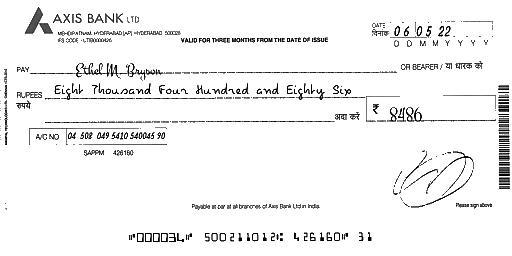 AXIS BANK LTD
MEHDIPATNAM, HYDERABAD [AP] HYDERABAD 500028
IFS CODE - UTIB0000426
VALID FOR THREE MONTHS FROM THE DATE OF ISSUE
DATE
दिनांक 06 05 22
D D M M Y Y Y Y
PAY Ethel M. Bryson OR BEARER / या धारक को
RUPEES Eight Thousand Four Hundred and Eighty Six
रुपये अदा करें ₹ 8486
A/C NO 04 508 049 5410 540045 90
SAPPM 426160
Payable at par at all branches of Axis Bank Ltd in India.
Please sign above
⑈000034⑈ 500211012⑆ 426160⑈ 31